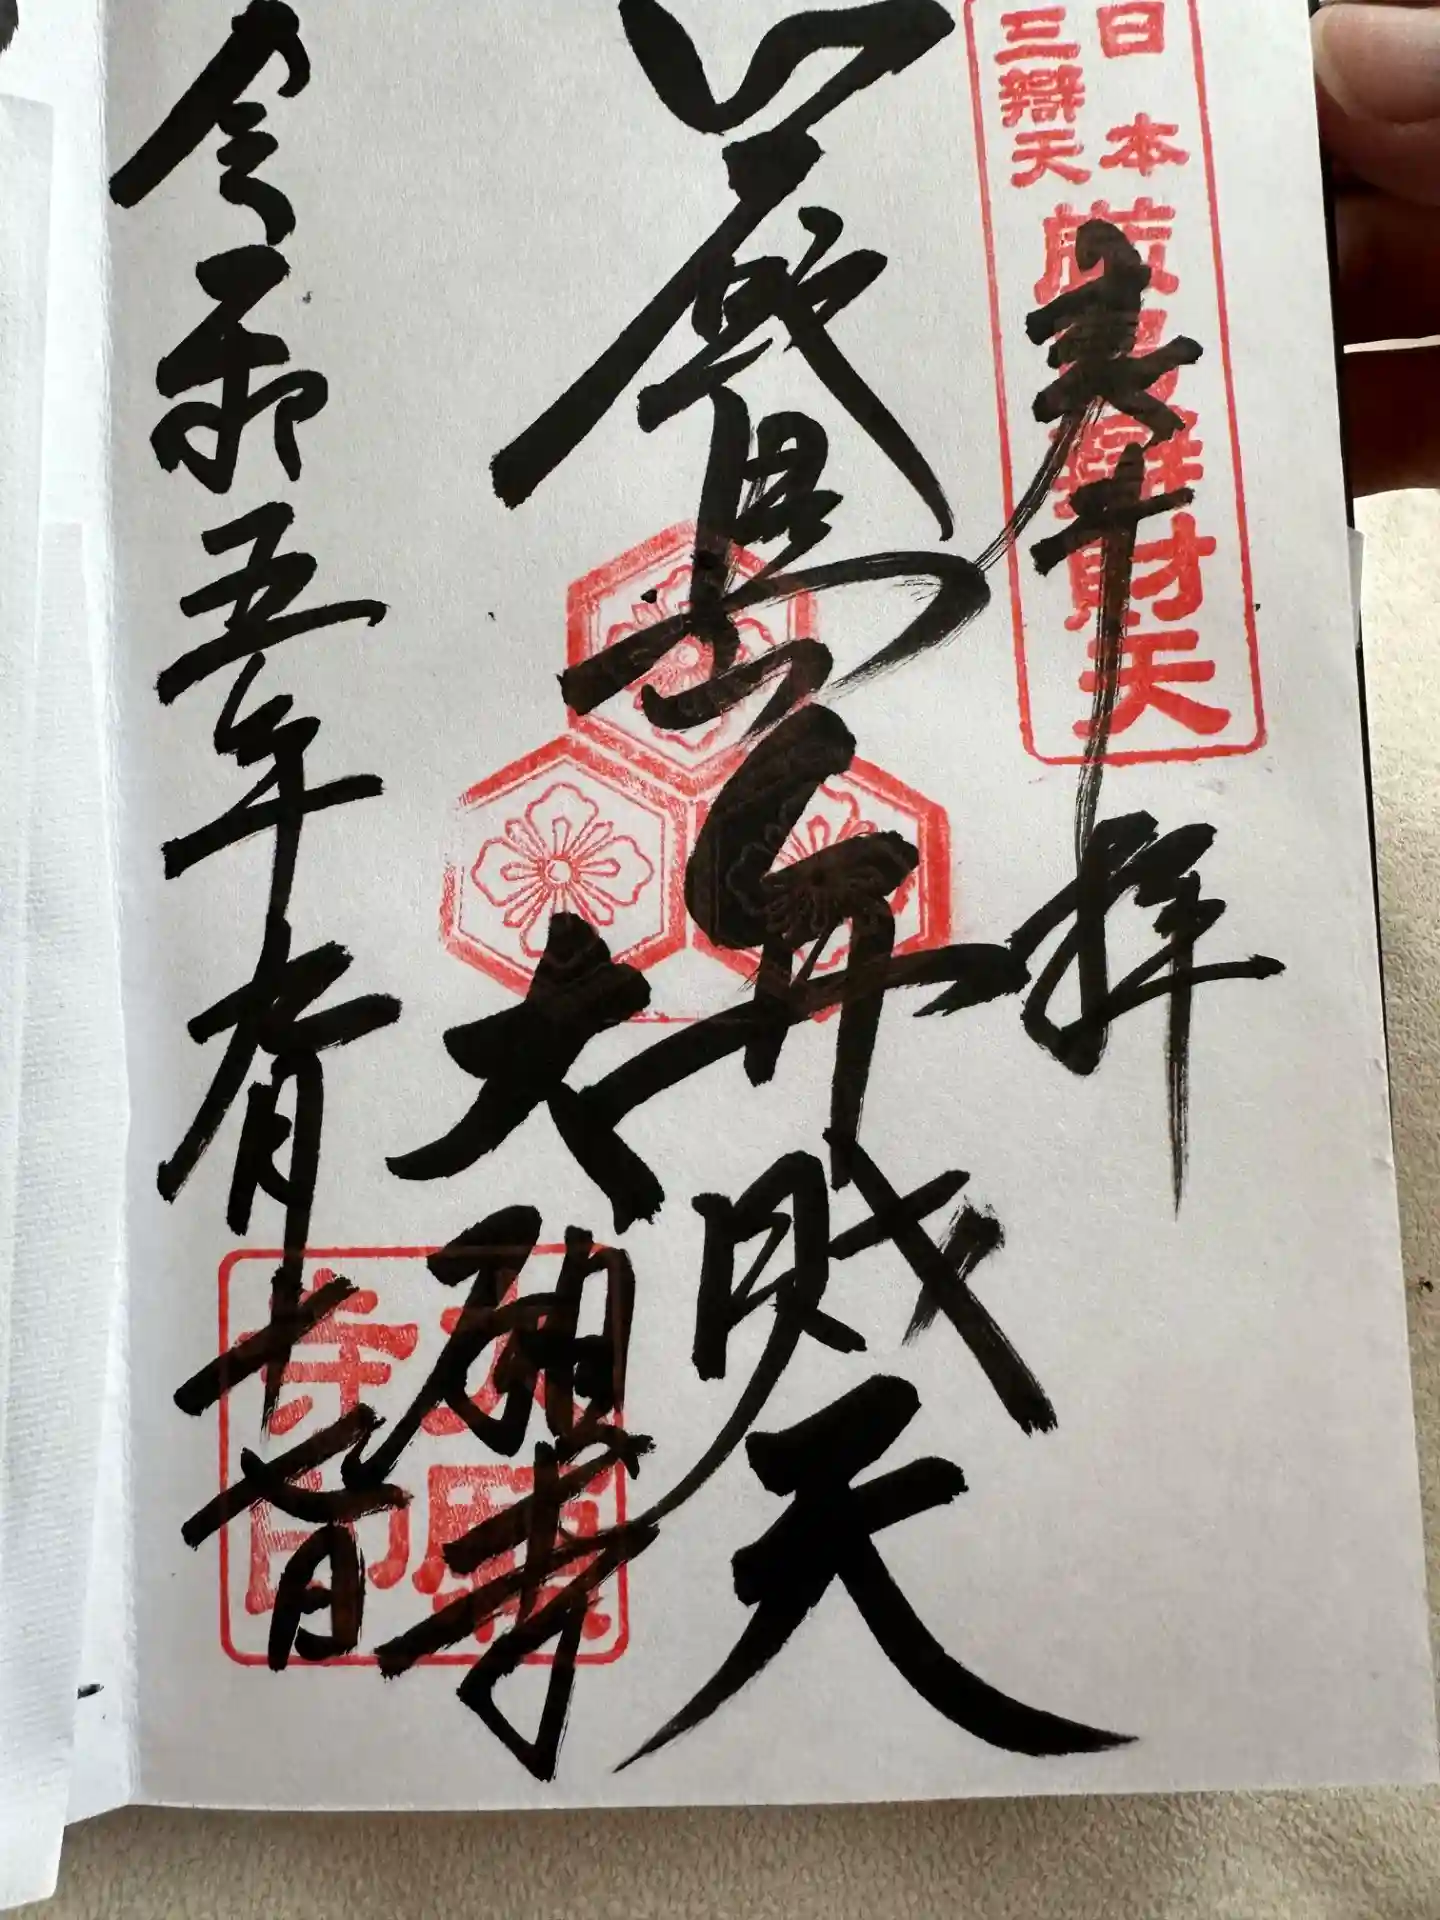 日本
三辯天
厳島辯財天
奉拝
嚴島弁財天
大願寺
大願
寺印
令和五年九月十七日